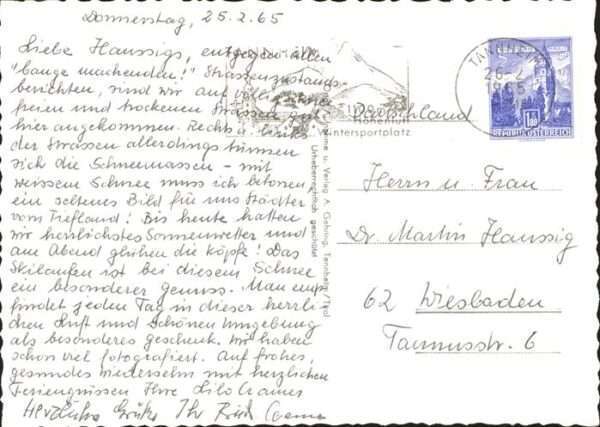 Donnerstag, 25.2.65
Liebe Haussigs, entgegen allen
"bange machenden!" Strassenzustands-
berichten, sind wir auf völlig
freien und trockenen Strassen gut
hier angekommen. Rechts u. links
der Strassen allerdings türmen
sich die Schneemassen – mit
weissem Schnee muss ich betonen,
ein seltenes Bild für uns Städter
vom Tiefland! Bis heute hatten
wir herrlichstes Sonnenwetter und
am Abend glühen die Köpfe! Das
Skilaufen ist bei diesem Schnee
ein besonderer Genuss. Man emp-
findet jeden Tag in dieser herrli-
chen Luft und schönen Umgebung
als besonderes Geschenk. Wir haben
schon viel fotografiert. Auf frohes,
gesundes Wiedersehn mit herzlichen
Feriengrüssen Ihre Lilo Cramer
Herzliche Grüße Ihr
Aufnahme u. Verlag A. Gehring, Tannheim/Tirol
Urheberrechtlich geschützt
Höhenluft
Wintersportplatz
TANNHEIM
26. 2.
1965
1.80
REPUBLIK ÖSTERREICH
Deutschland
Herrn u. Frau
Dr. Martin Haussig
62 Wiesbaden
Taunusstr. 6